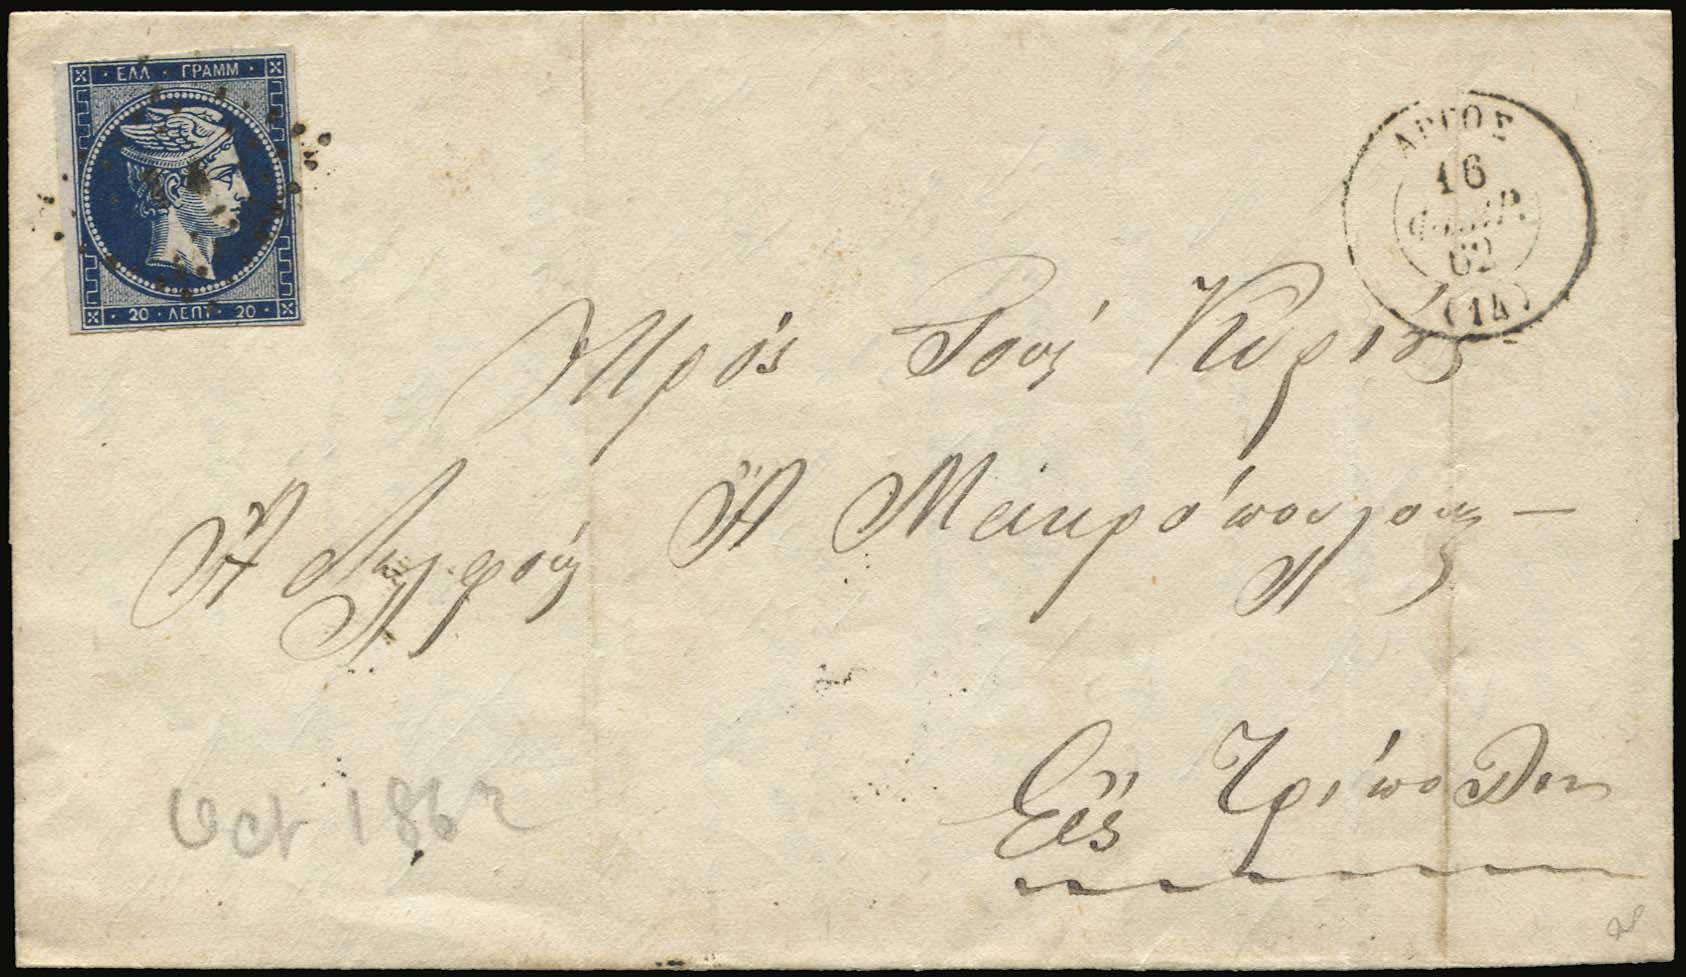 ΕΛΛ · ΓΡΑΜΜ
20 · ΛΕΠΤ · 20
ΑΡΓΟΣ
16
62
(14)
Πρὸς Τοὺς Κυρίους
Ἀδελφοὺς Ἀ Μακροπούλους
Εἰς Τρίπολιν
Oct 1862